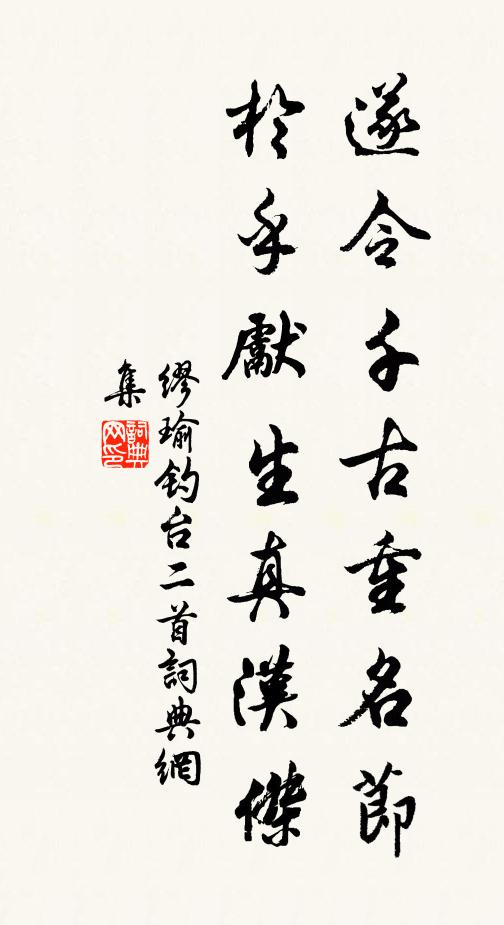 遂令千古重名節
於乎獻生真漢傑
繆瑜釣台二首詞典網
集
詞典网印